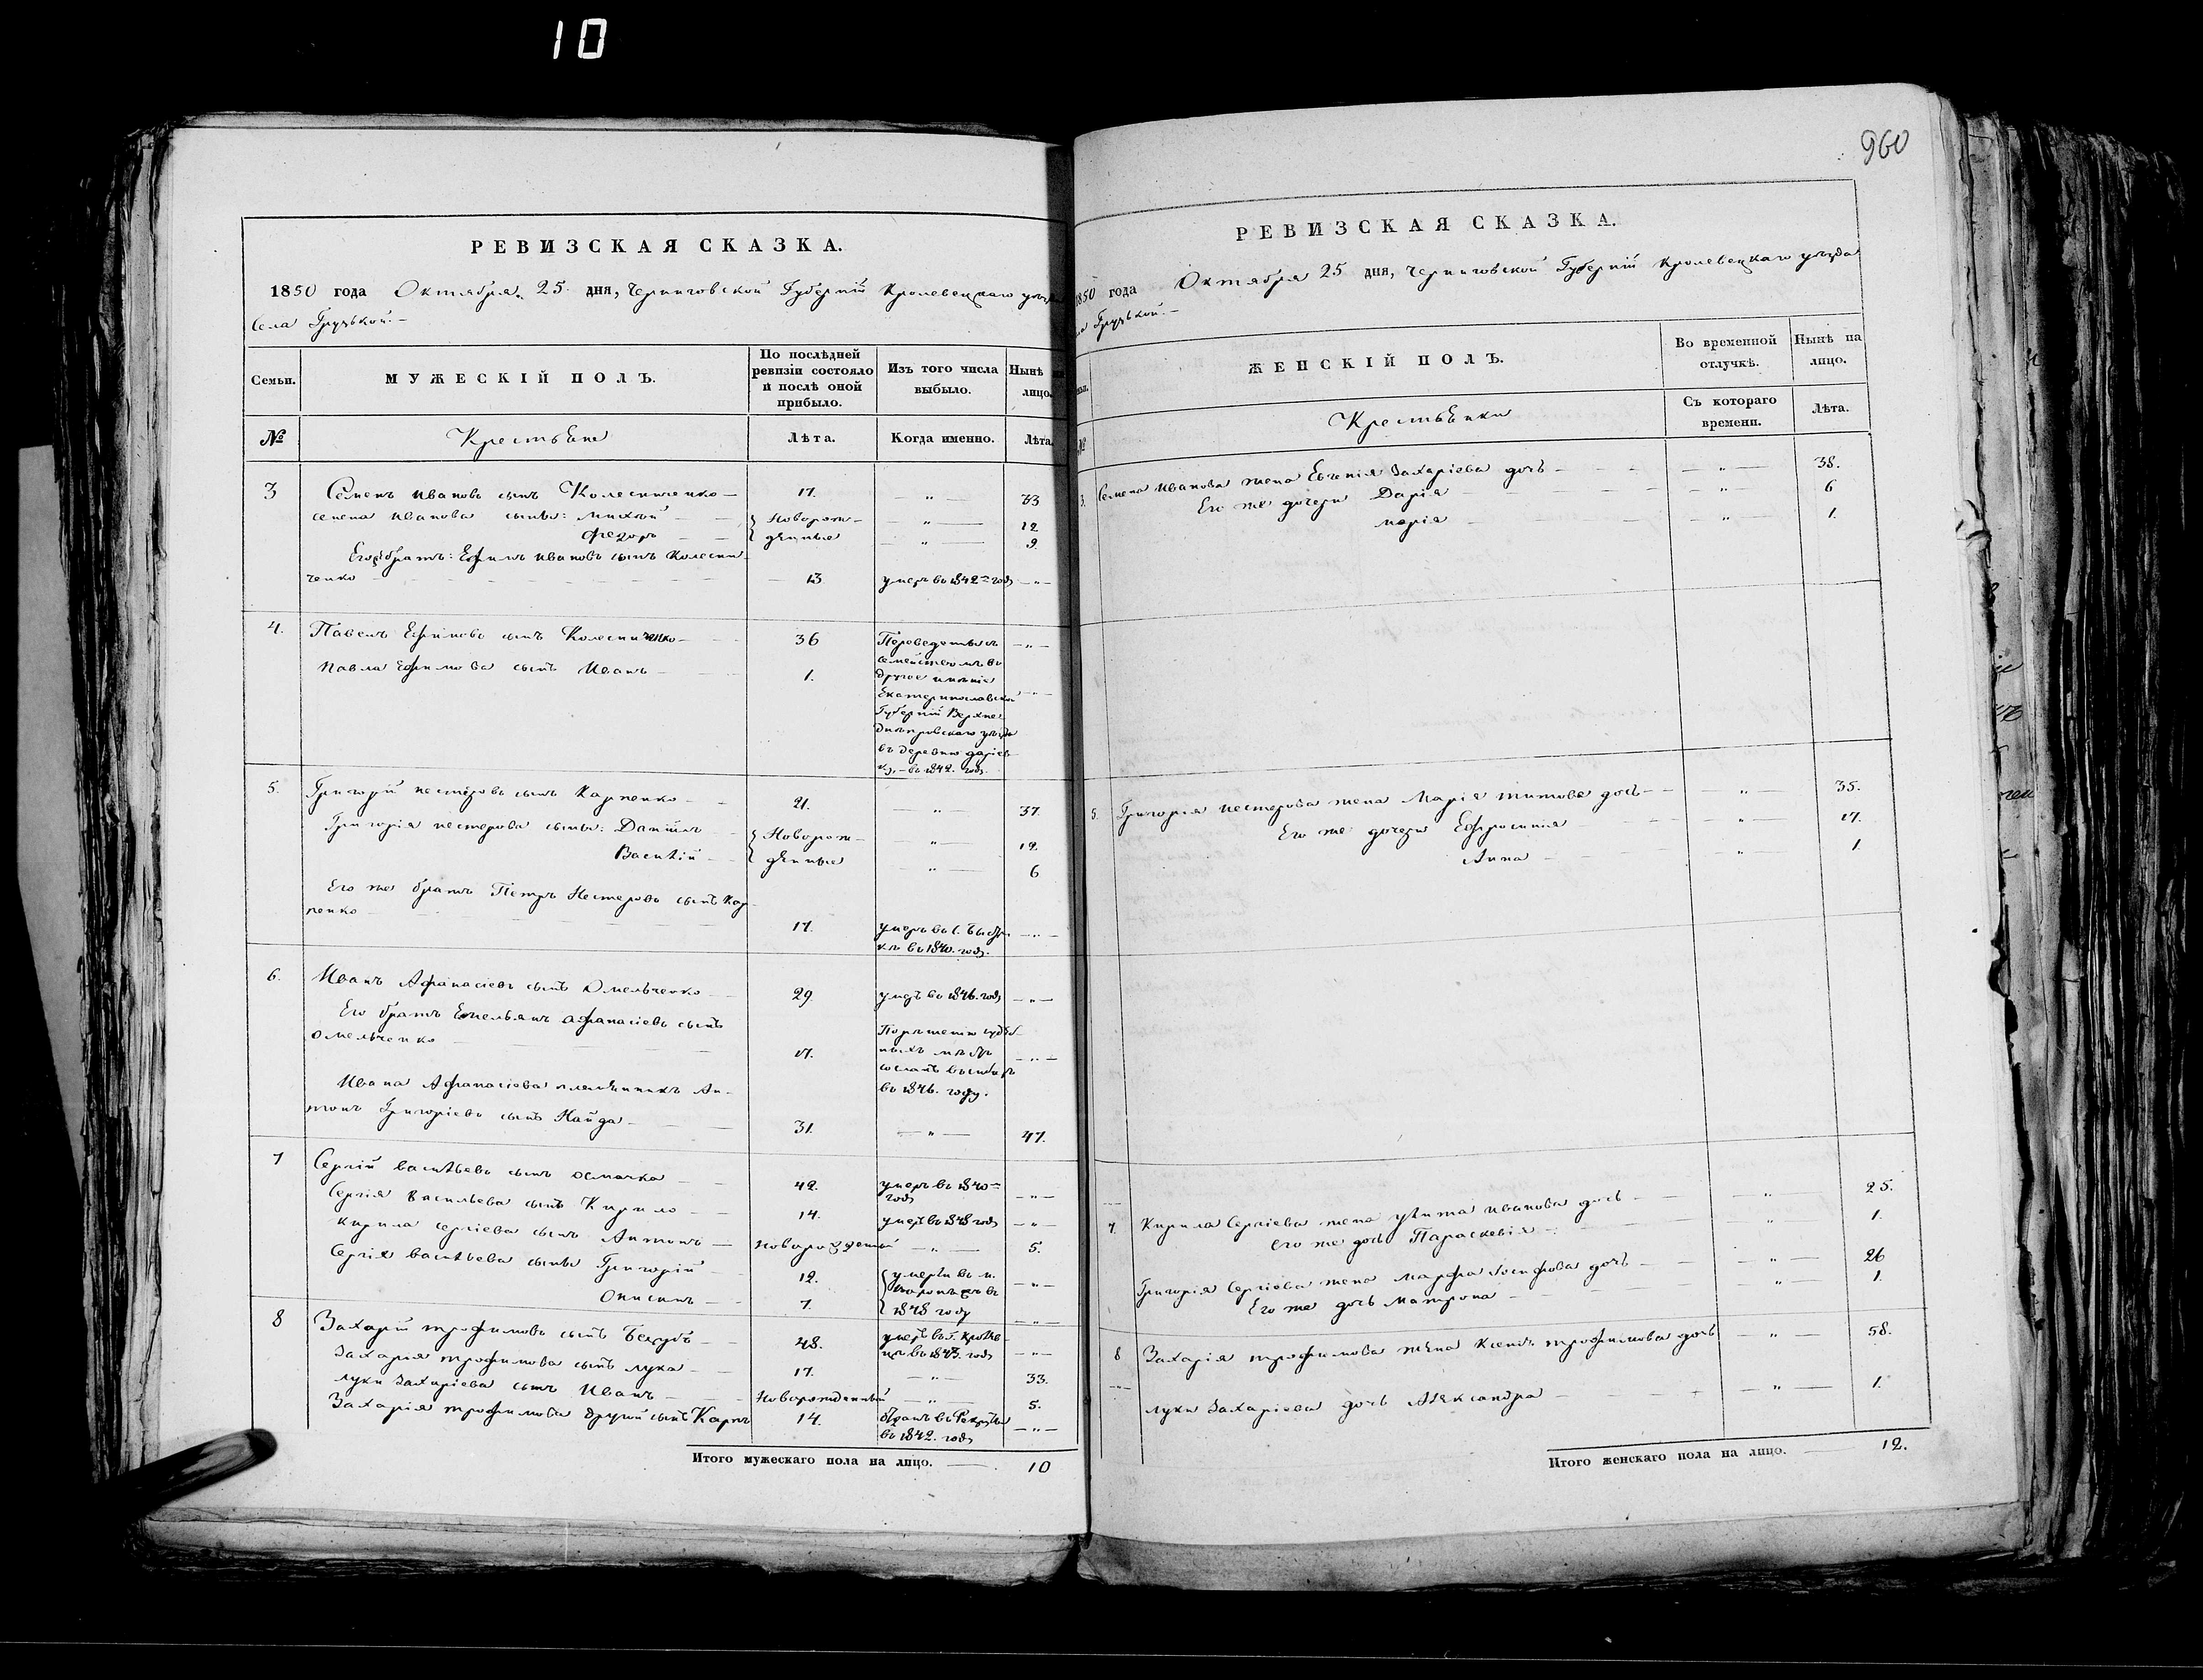 10
РЕВИЗСКАЯ СКАЗКА.
1850 года Октября 25 дня, Черниговской Губерніи Кролевецкаго уѣзда
Села Грузькой.
Семьи.
МУЖЕСКІЙ ПОЛЪ.
По послѣдней ревизіи состояло и послѣ оной прибыло.
Изъ того числа выбыло.
Нынѣ на лицо.
№
Крестьяне
Лѣта.
Когда именно.
Лѣта.
3 Семенъ Ивановъ сынъ Колесниченко 17. — " — 33
Семена Иванова сыны: Михей Новорож- — " — 12
Федоръ денные — " — 9
Его братъ: Ефимъ Ивановъ сынъ Колесни-
ченко 13 умеръ въ 1842 м годѣ — " —
4. Павелъ Ефимовъ сынъ Колесниченко 36 Переведены съ — " —
семействомъ въ
Павла Ефимова сынъ Иванъ 1. другое имѣніе
Екатеринославской — " —
Губерніи Верхне-
днѣпровскаго уѣзда
въ деревню
въ 1842. годѣ.
5. Григорій Нестеровъ сынъ Карпенко 21. — " — 37.
Григорія Нестерова сыны: Даніилъ Новорож- — " — 12.
Василій денные — " — 6
Его же братъ Петръ Нестеровъ сынъ Кар-
пенко 17. умеръ въ с.
въ 1840. годѣ. — " —
6. Иванъ Афанасіевъ сынъ Омельченко 29. умеръ въ 1846. годѣ — " —
Его братъ Емельянъ Афанасіевъ сынъ По рѣшенію судеб-
Омельченко 17. ныхъ мѣстъ — " —
сосланъ въ сибирь
Ивана Афанасіева племянникъ Ан- въ 1846. году.
тонъ Григоріевъ сынъ Найда 31. — " — 47.
7 Сергій Васильевъ сынъ Осмачка 42. умеръ въ 1840 м
годѣ — " —
Сергія Васильева сынъ Кирило 14. умеръ въ 1848 годѣ — " —
Кирила Сергіева сынъ Антонъ Новорожденный — " — 5.
Сергія Васильева сыны Григорій 12. умерли въ м. — " —
Коропѣ въ
Онисимъ 7. 1848 году — " —
8 Захарій Трофимовъ сынъ 48. умеръ въ г. Кролев-
цѣ въ 1843. годѣ — " —
Захарія Трофимова сынъ Лука 17. — " — 33.
Луки Захаріева сынъ Иванъ Новорожденный — " — 5.
Захарія Трофимова другой сынъ Карпъ 14. взятъ въ Рекруты
въ 1842. годѣ — " —
Итого мужескаго пола на лицо. 10
960
РЕВИЗСКАЯ СКАЗКА.
1850 года Октября 25 дня, Черниговской Губерніи Кролевецкаго уѣзда
Грузькой.
ЖЕНСКІЙ ПОЛЪ.
Во временной отлучкѣ.
Нынѣ на лицо.
№
Крестьянки
Съ котораго времени.
Лѣта.
3. Семена Иванова жена Евгенія Захаріева дочь — " — 38.
Его же дочери Дарія — " — 6
Марія — " — 1.
5 Григорія Нестерова жена Марія Титова дочь — " — 35.
Его же дочери Ефросинія — " — 17.
Анна — " — 1
7. Кирила Сергіева жена Улита Иванова дочь — " — 25.
Его же дочь Параскевія — " — 1.
Григорія Сергіева жена Марфа Іосифова дочь — " — 26
Его же дочь Матрона — " — 1.
8 Захарія Трофимова жена Ксенія Трофимова дочь — " — 58.
Луки Захаріева дочь Александра — " — 1.
Итого женскаго пола на лицо. 12.